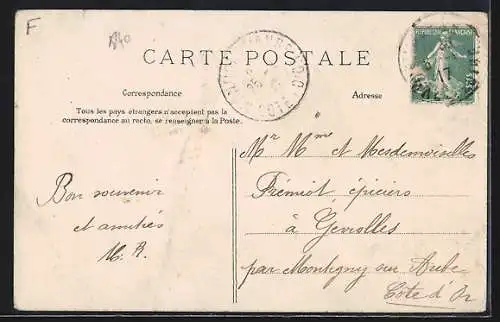 F
CARTE POSTALE
Correspondance
Adresse
Tous les pays étrangers n'acceptent pas la
correspondance au recto, se renseigner à la Poste.
RÉPUBLIQUE FRANÇAISE
Mr Mme et Mesdemoiselles
Frémiot, épiciers
à Gevrolles
par Montigny sur Aube
Côte d'Or
Bon souvenir
et amitiés